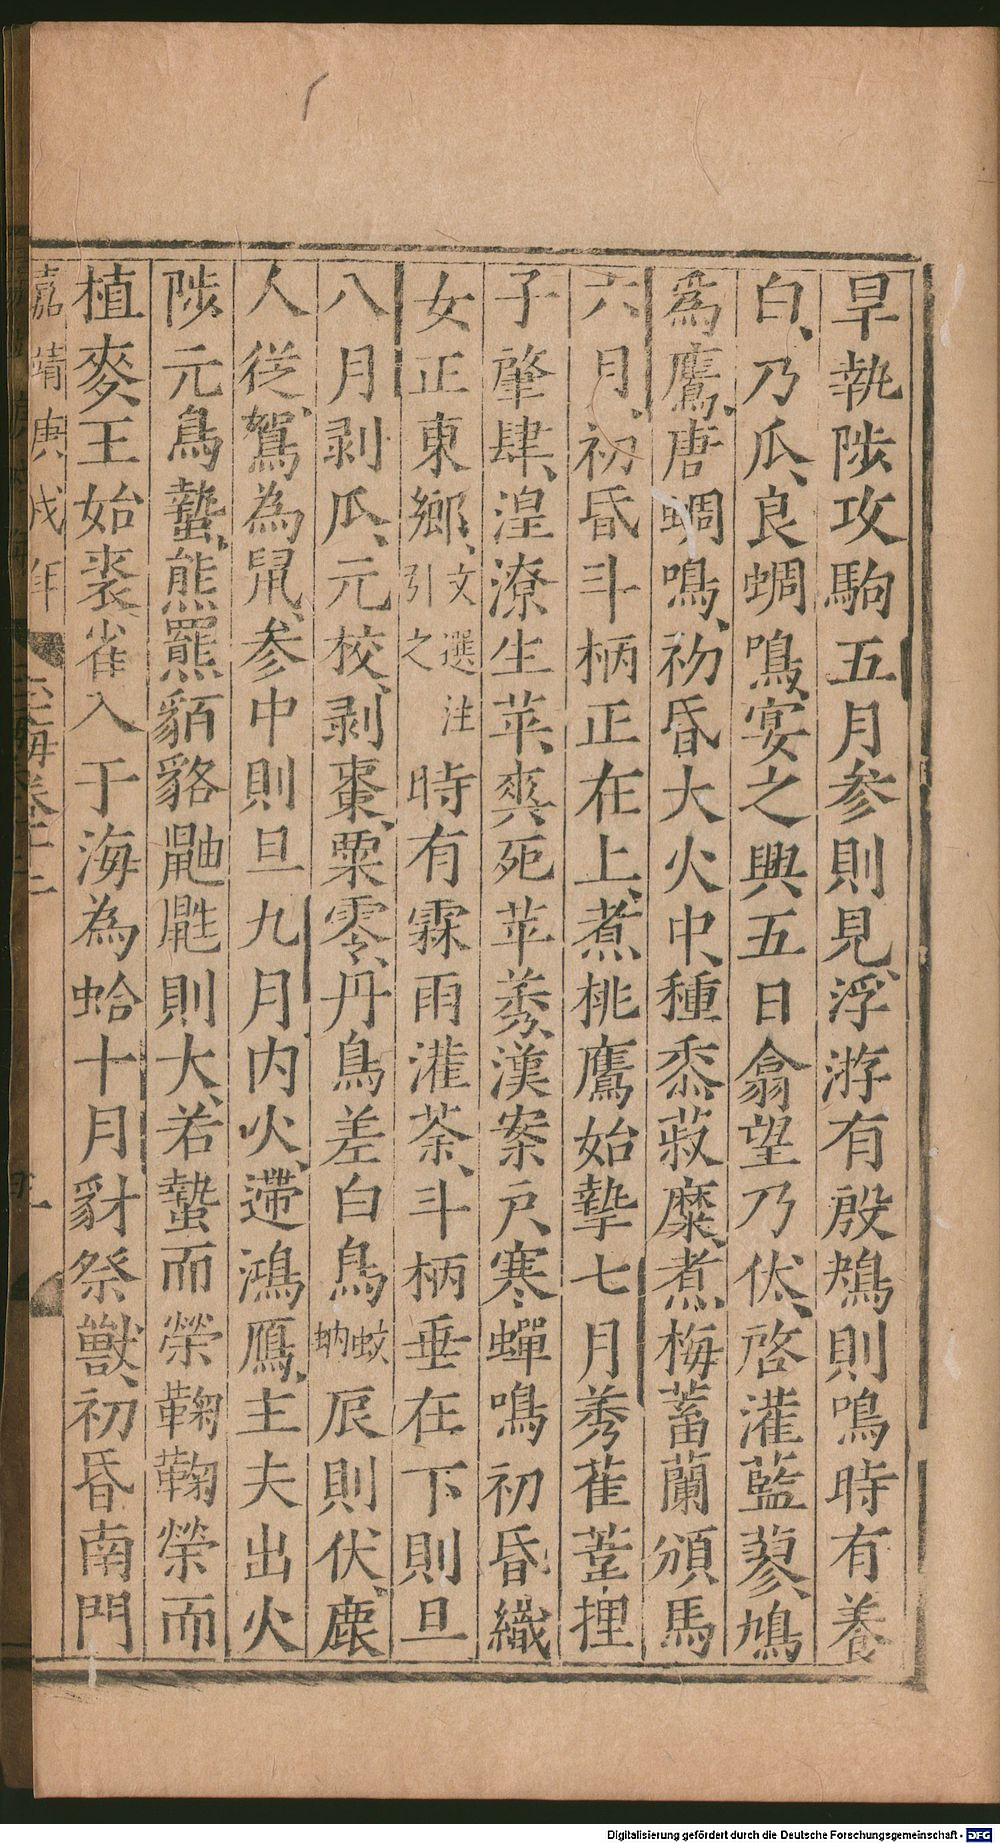 旱執陟攻駒五月参則見浮游有殷鴂則鳴時有養
白、乃瓜、良蜩鳴、宴之興五日翕望乃伏、啓灌藍蓼、鳩
爲鷹、唐蜩鳴、初昏大火中、種黍菽糜、煮梅蓄蘭頒馬
六月、初昏斗柄正在上、煮桃鷹始摯七月莠雈葦狸
子肇肆、湟潦生苹、爽死苹莠、漢案戸寒蟬鳴初昏織
女正東鄉、文選注引之時有霖雨灌荼、斗柄垂在下則旦
八月剥瓜、元校、剥棗、粟零、丹鳥羞白鳥蚊蚋辰則伏、鹿
人從、駕為鼠、参中則旦九月内火、遰鴻鴈、主夫出火
陟元鳥蟄、熊羆貊貉鼬則大、若蟄而榮鞠鞠榮而
植麥王始裘雀入于海為蛤十月豺祭獸、初昏南門
嘉靖庚戌年
玉海卷十二
Digitalisierung gefördert durch die Deutsche Forschungsgemeinschaft - DFG